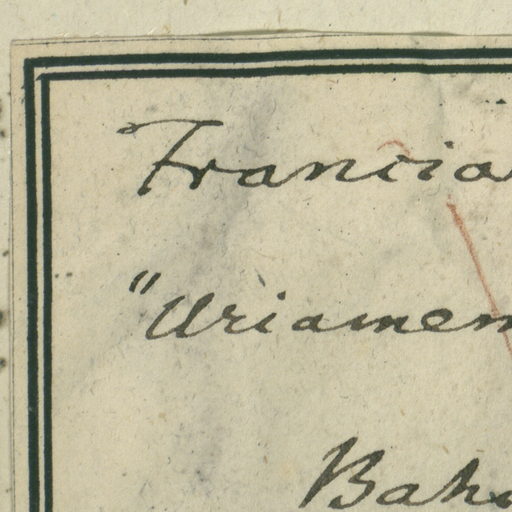 Francia
"Uriamem
Bah